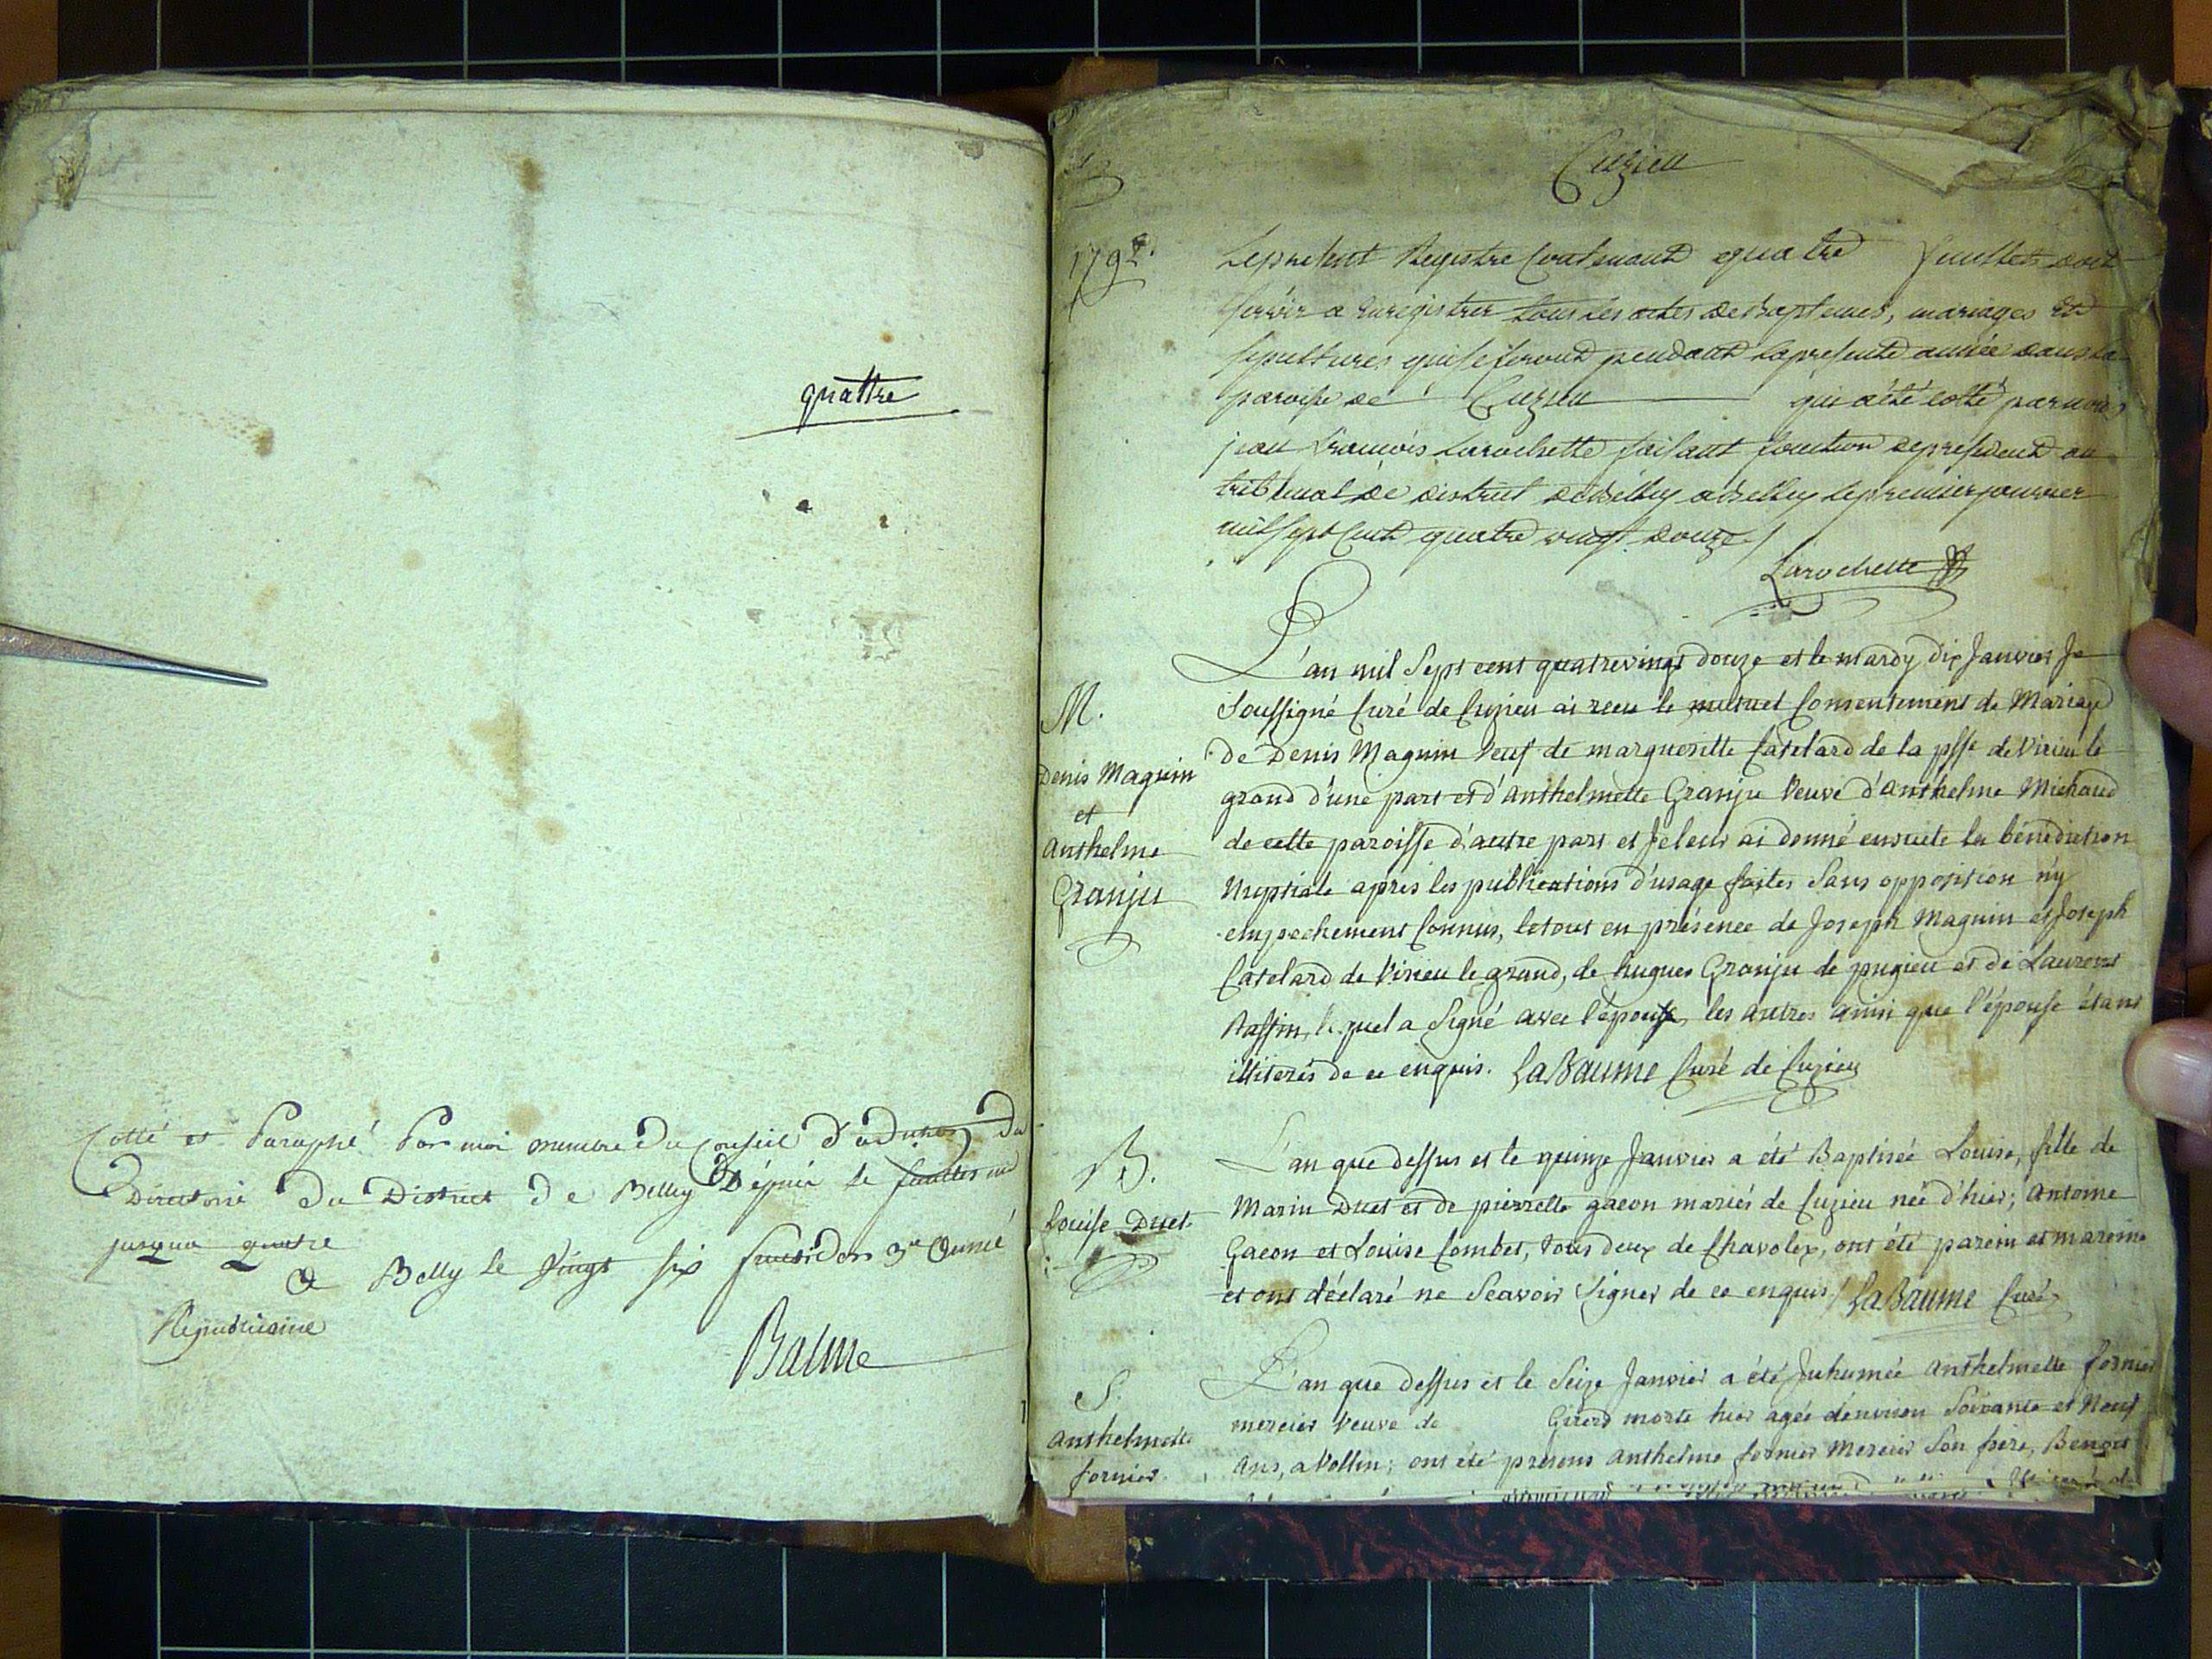 quattre
Cotté et Paraphé Par moi membre du Conseil d'admon du
Directoire du District de Belley Depuis le feuillet un
jusqua quatre
A Belley le Vingt six fructidor 3e année
Républicaine
Balme
Cuzieu
1792.
Le present Registre Contenant quatre feuillets doit
servir a enregistrer tous les actes de baptemes, mariages et
sepultures qui se feront pendant la presente année dans la
paroisse de Cuzieu qui a été cotté par nous
jean françois Larochette faisant fonction de president au
tribunal de district de Belley a Belley le premier janvier
mil sept Cent quatre vingt douze /
Larochette
L'an mil Sept cent quatrevingt douze et le mardy dix Janvier Je
M.
Soussigné Curé de Cuzieu ai recu le mutuel Consentement de Mariage
Denis Magnin
de Denis Magnin Veuf de margueritte Catelard de la psse de Virieu le
et
grand d'une part et d'Anthelmette Granju Veuve d'Anthelme Michaud
Anthelme
de cette paroisse d'autre part et Je leur ai donné ensuite la bénédiction
Granju
Nuptiale après les publications d'usage faites Sans opposition n'y
empechement Connus, le tout en présence de Joseph Magnin et Joseph
Catelard de Virieu le grand, de hugues Granju de pugieu et de Laurent
Rassin, lequel a Signé avec l'époux, les autres ainsi que l'épouse étant
illiterés de ce enquis. LaBaume Curé de Cuzieu
B.
L'an que dessus et le quinze Janvier a été Baptisée Louise, fille de
Louise Duet
Marin Duet et de pierrette gacon mariés de Cuzieu née d'hier; Antoine
Gacon et Louise Combet, tous deux de Chavolex, ont été parein et mareine
et ont déclaré ne Scavoir Signer de ce enquis / LaBaume Curé
S.
L'an que dessus et le Seize Janvier a été Juhumée Anthelmette fornier
Anthelmette
mercier Veuve de Girerd morte hier agée d'environ Soixante et Neuf
fornier
Ans, a Vollin; ont été présens Anthelme fornier Mercier Son frère, Benoit